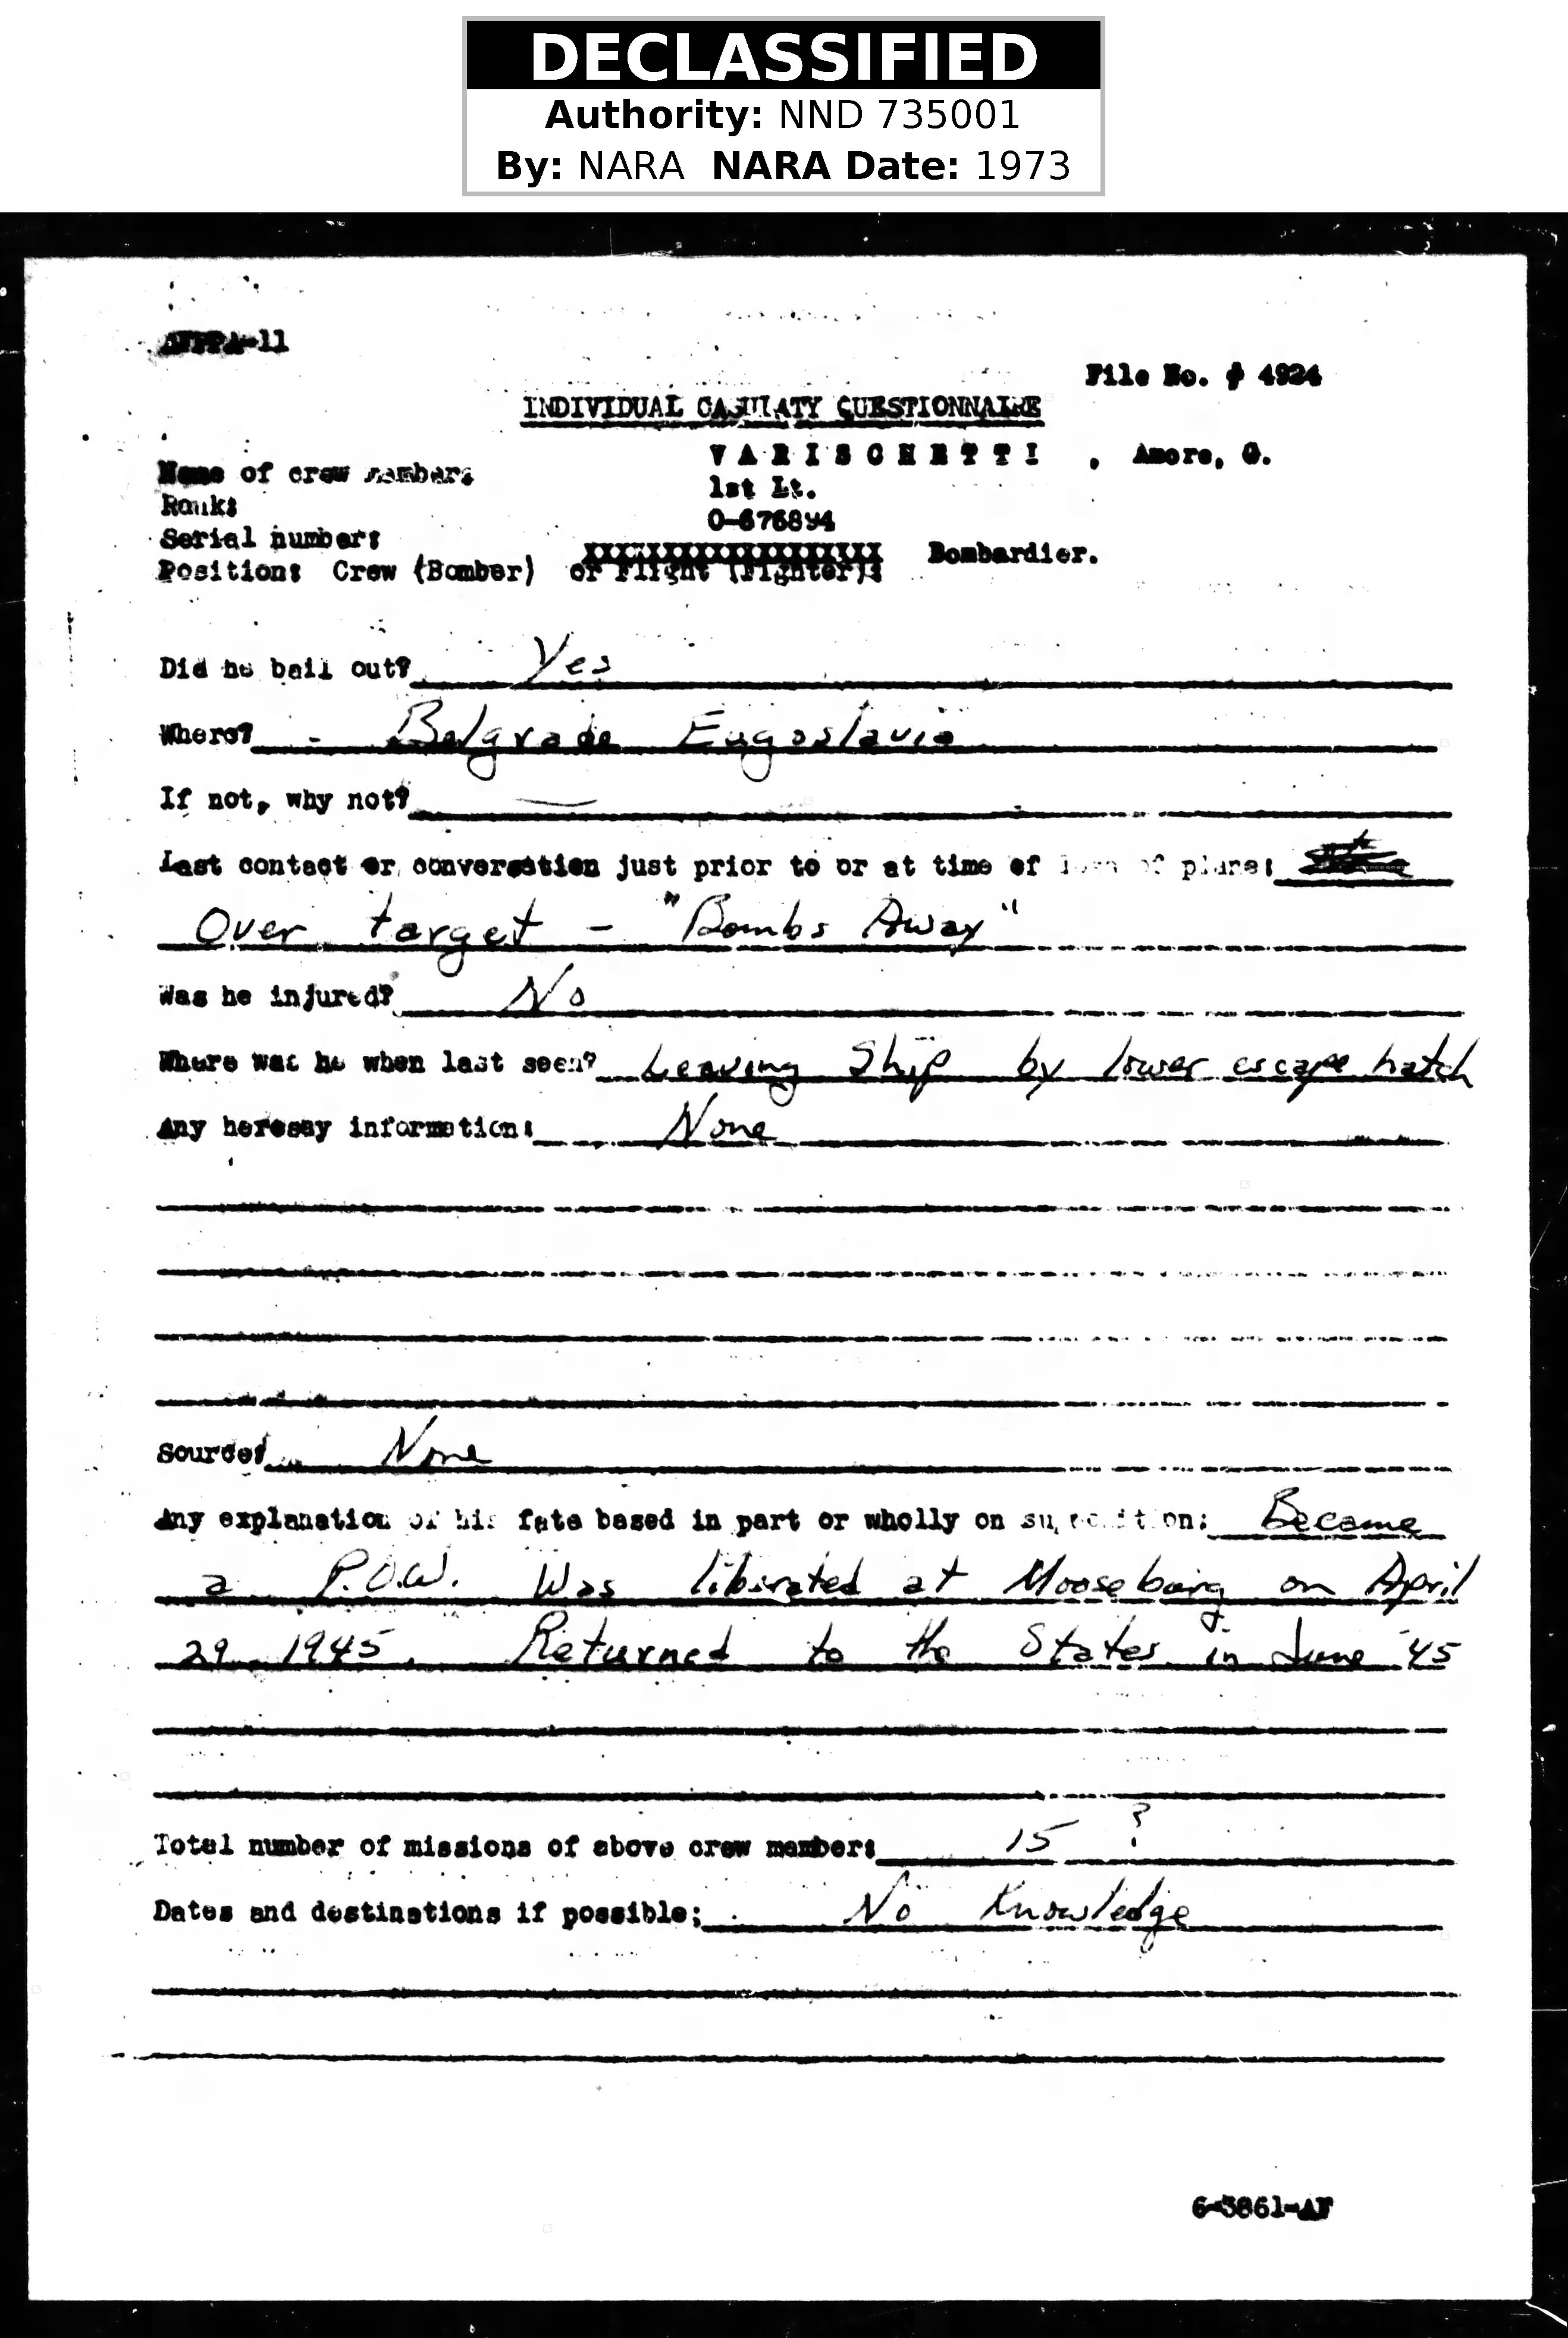 DECLASSIFIED
Authority: NND 735001
By: NARA NARA Date: 1973
AFPPA-11
File No. # 4924
INDIVIDUAL CASULATY QUESTIONNAIRE
Name of crew member: V A R I S C H E T T I , Amore, G.
Rank: 1st Lt.
Serial number: 0-676894
Position: Crew (Bomber) or Flight (Fighter): Bombardier.
Did he bail out? Yes
Where? - Belgrade Eugoslavia
If not, why not? —
Last contact or conversation just prior to or at time of loss of plane:
Over target - "Bombs Away"
Was he injured? No
Where was he when last seen? Leaving Ship by lower escape hatch
Any heresay information: None
Source: None
Any explanation of his fate based in part or wholly on supposition: Became
a P.O.W. Was liberated at Mooseburg on April
29 1945. Returned to the States in June '45
Total number of missions of above crew member: 15 ?
Dates and destinations if possible; No Knowledge
6-3861-AF